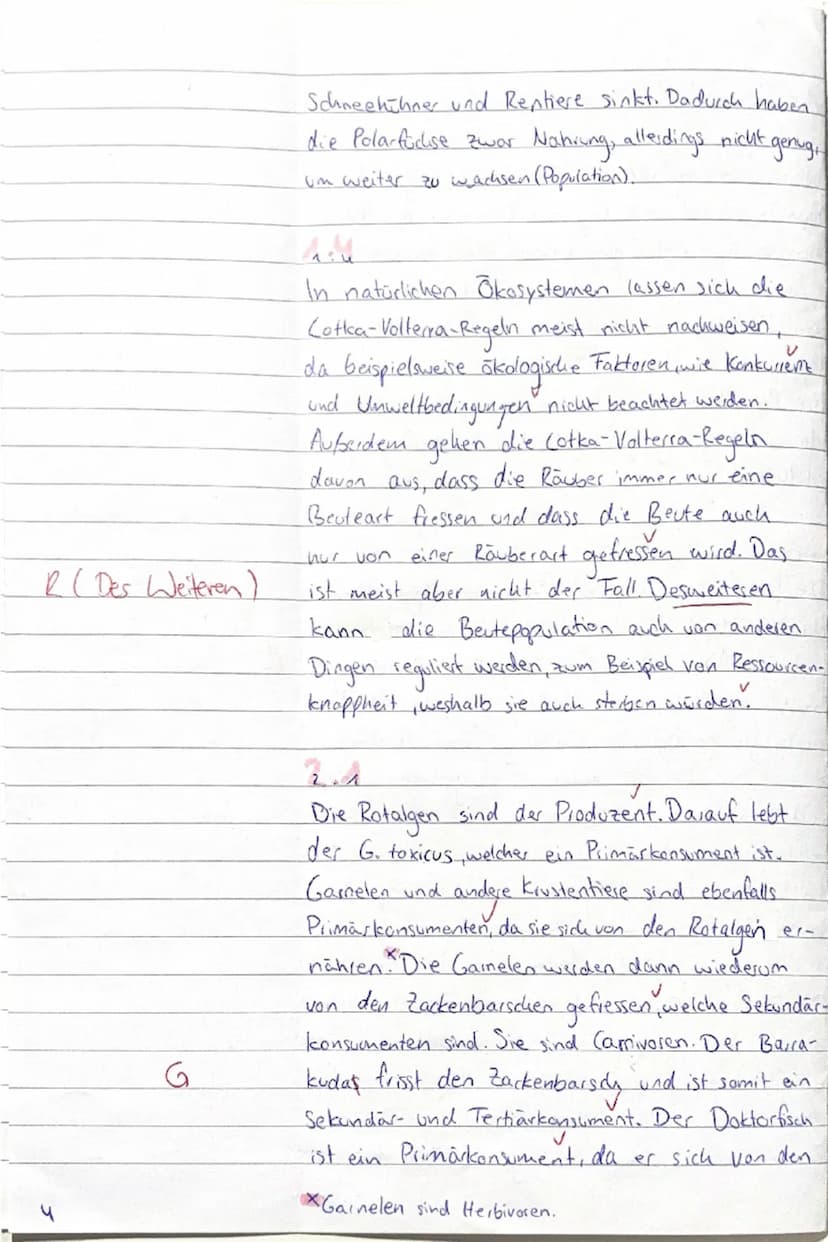 Schneehühner und Rentiere sinkt. Dadurch haben
die Polarfüchse zwar Nahrung, allerdings nicht genug,
um weiter zu wachsen (Population).
1.4
In natürlichen Ökosystemen lassen sich die
Lotka-Volterra-Regeln meist nicht nachweisen,
da beispielsweise ökologische Faktoren, wie Konkurrenz
und Umweltbedingungen nicht beachtet werden.
Außerdem gehen die Lotka-Volterra-Regeln
davon aus, dass die Räuber immer nur eine
Beuteart fressen und dass die Beute auch
nur von einer Räuberart gefressen wird. Das
R (Des Weiteren) ist meist aber nicht der Fall. Desweiteren
kann die Beutepopulation auch von anderen
Dingen reguliert werden, zum Beispiel von Ressourcen-
knappheit, weshalb sie auch sterben würden.
2.1
Die Rotalgen sind der Produzent. Darauf lebt
der G. toxicus, welcher ein Primärkonsument ist.
Garnelen und andere Krustentiere sind ebenfalls
Primärkonsumenten, da sie sich von den Rotalgen er-
nähren.x Die Garnelen werden dann wiederum
von den Zackenbarschen gefressen, welche Sekundär-
konsumenten sind. Sie sind Carnivoren. Der Barra-
G kudas frisst den Zackenbarsch und ist somit ein
Sekundär- und Tertiärkonsument. Der Doktorfisch
ist ein Primärkonsument, da er sich von den
x Garnelen sind Herbivoren.
4